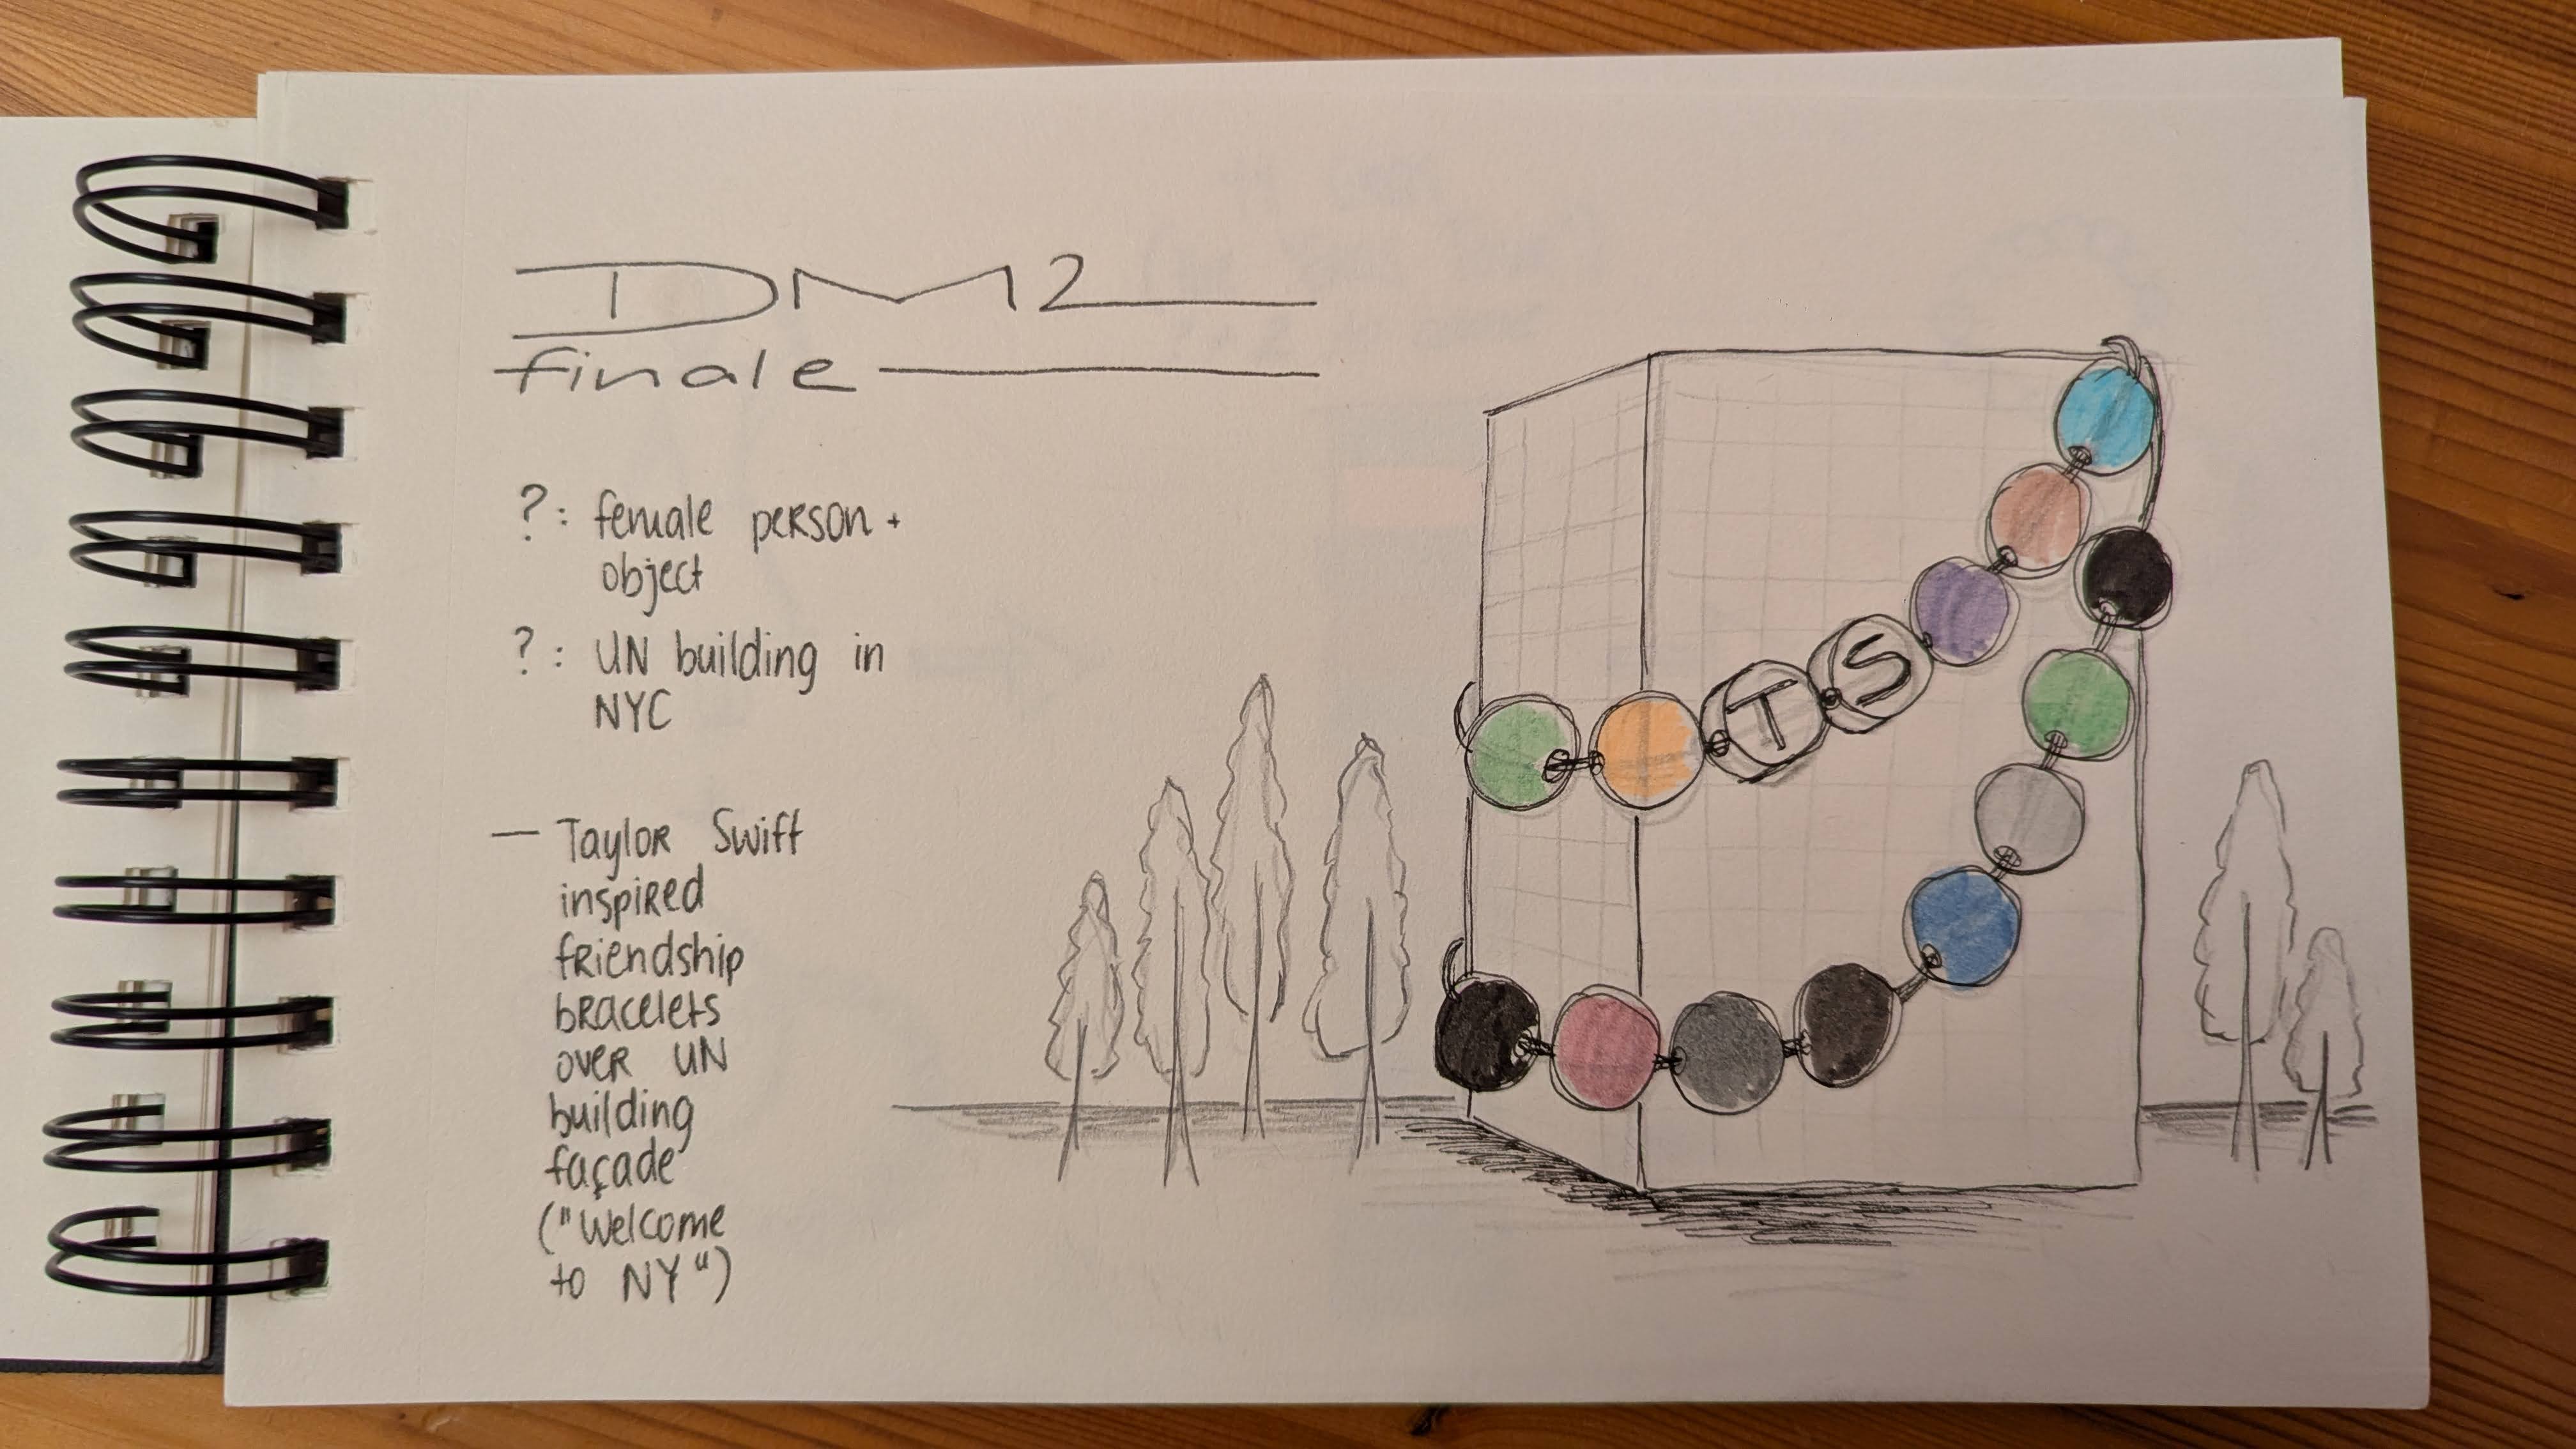 DM2
finale
?: female person +
object
?: UN building in
NYC
— Taylor Swift
inspired
friendship
bracelets
over UN
building
façade
("Welcome
to NY")
TS